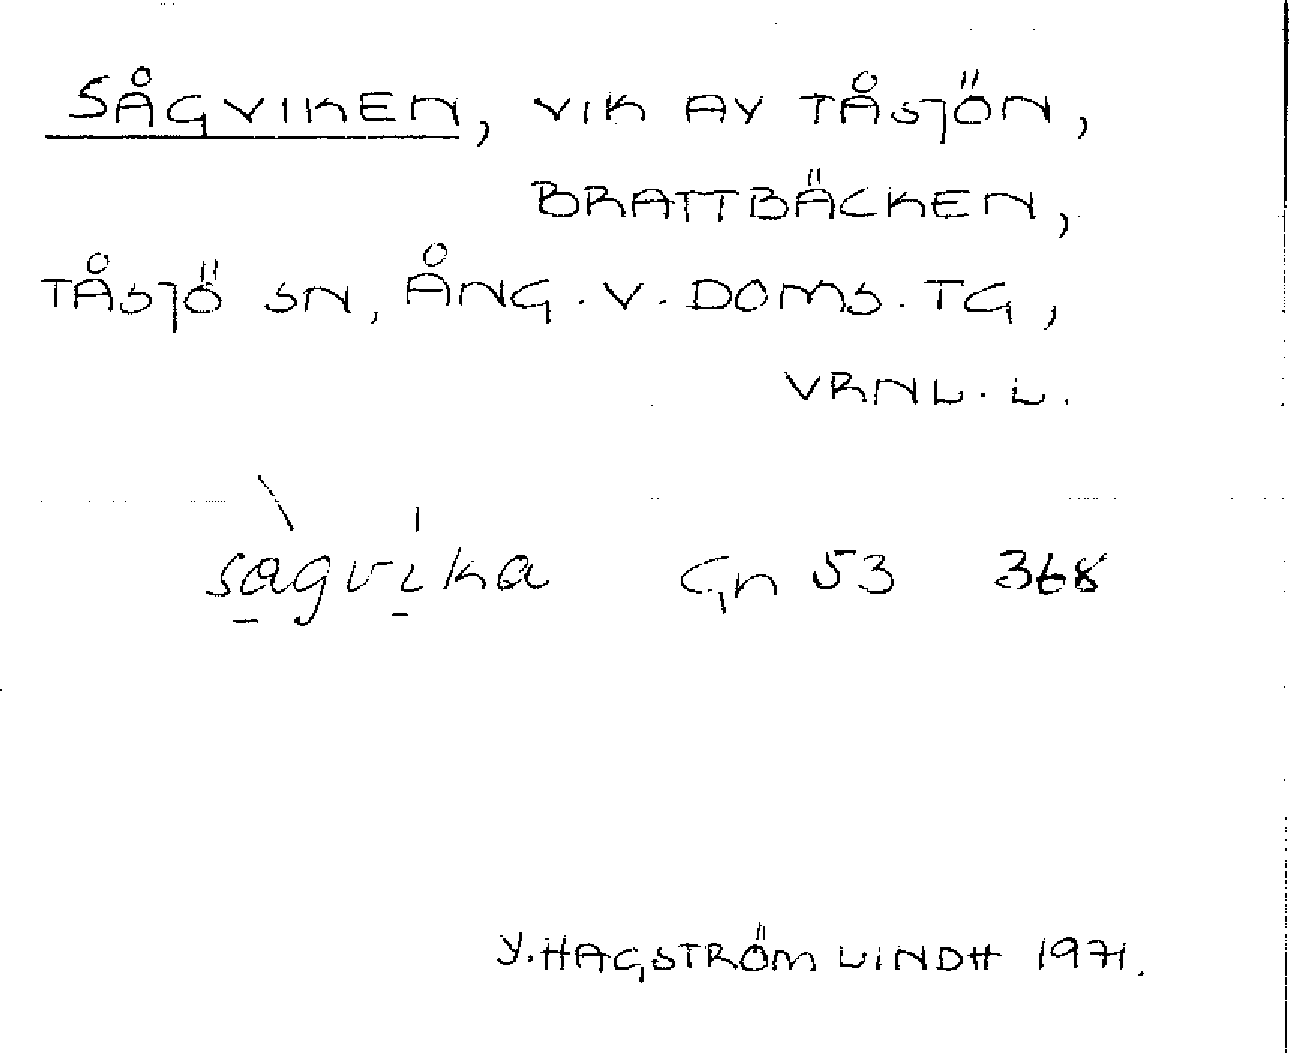 SÅGVIKEN, VIK AV TÅSJÖN,
BRATTBÄCKEN,
TÅSJÖ SN, ÅNG. V. DOMS. TG,
VRNL. L.
sàgvika Gn 53 368
Y. HAGSTRÖM LINDH 1971.